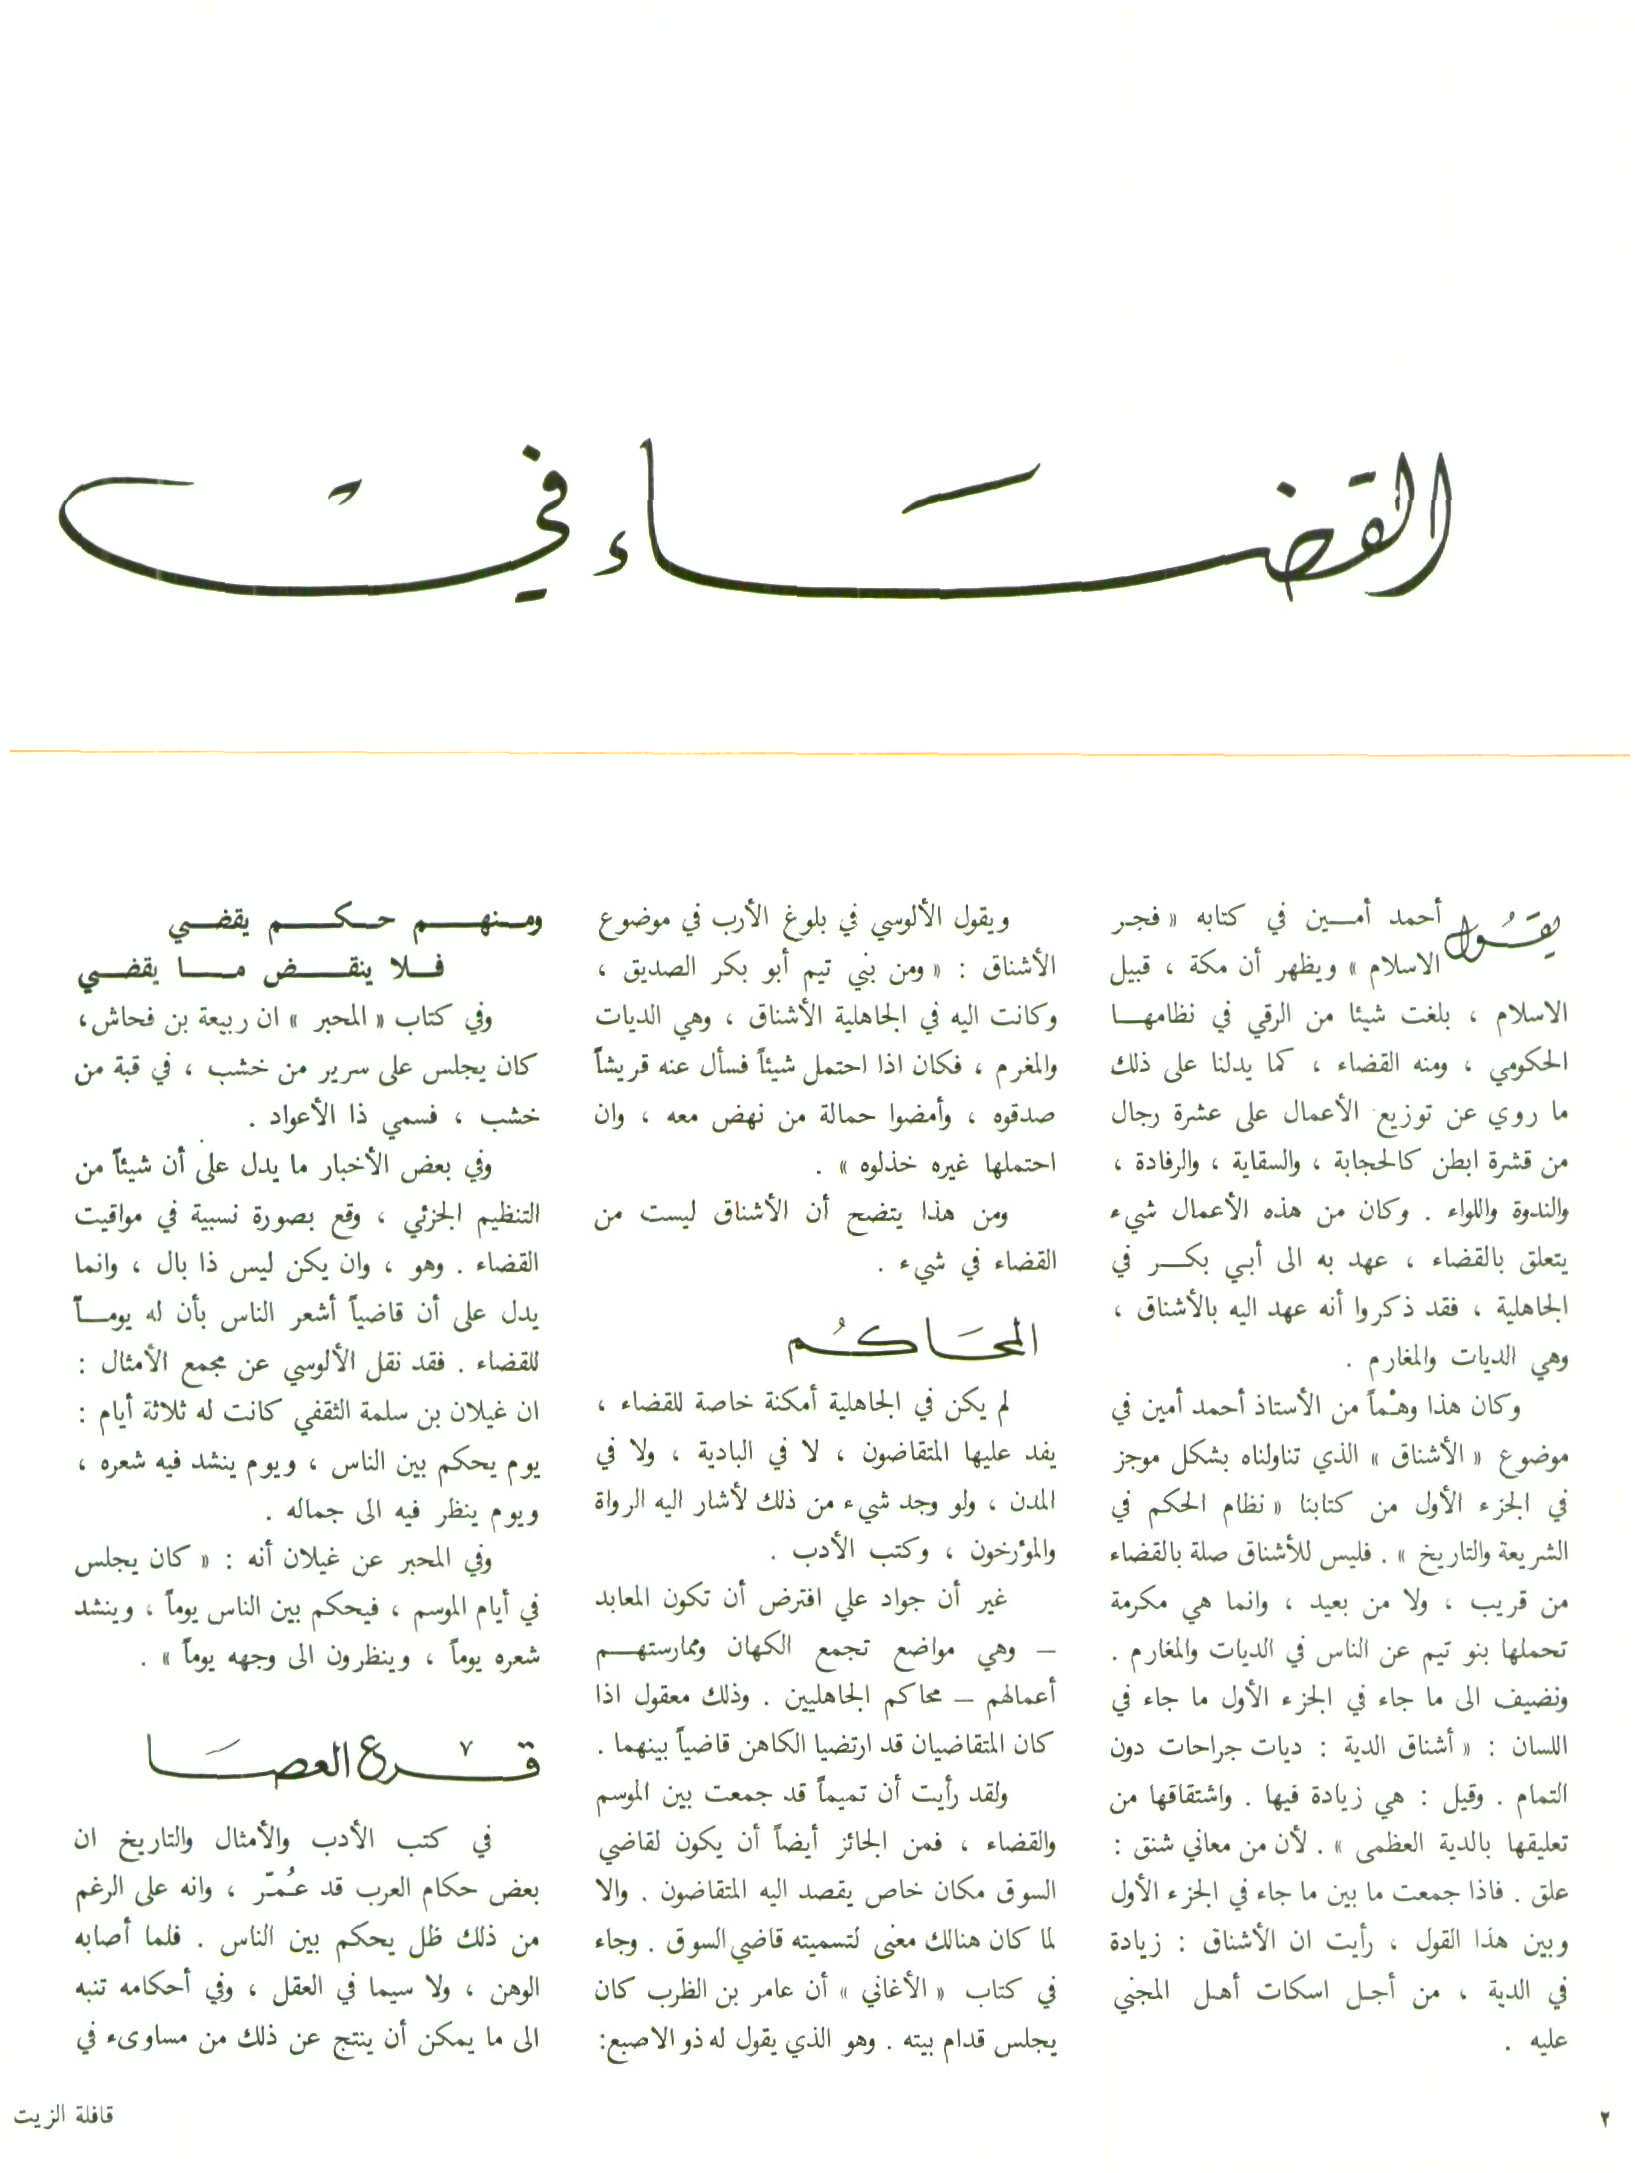 القضاء في
يقول أحمد أمين في كتابه « فجر
الاسلام » ويظهر أن مكة ، قبيل
الاسلام ، بلغت شيئا من الرقي في نظامها
الحكومي ، ومنه القضاء ، كما يدلنا على ذلك
ما روي عن توزيع الأعمال على عشرة رجال
من قشرة ابطن كالحجابة ، والسقاية ، والرفادة ،
والندوة واللواء . وكان من هذه الأعمال شيء
يتعلق بالقضاء ، عهد به الى أبي بكر في
الجاهلية ، فقد ذكروا أنه عهد اليه بالأشناق ،
وهي الديات والمغارم .
وكان هذا وهْماً من الأستاذ أحمد أمين في
موضوع « الأشناق » الذي تناولناه بشكل موجز
في الجزء الأول من كتابنا « نظام الحكم في
الشريعة والتاريخ » . فليس للأشناق صلة بالقضاء
من قريب ، ولا من بعيد ، وانما هي مكرمة
تحملها بنو تيم عن الناس في الديات والمغارم .
ونضيف الى ما جاء في الجزء الأول ما جاء في
اللسان : « أشناق الدية : ديات جراحات دون
التمام . وقيل : هي زيادة فيها . واشتقاقها من
تعليقها بالدية العظمى » . لأن من معاني شنق :
علق . فاذا جمعت ما بين ما جاء في الجزء الأول
وبين هذا القول ، رأيت ان الأشناق : زيادة
في الدية ، من أجل اسكات أهل المجني
عليه .
ويقول الألوسي في بلوغ الأرب في موضوع
الأشناق : « ومن بني تيم أبو بكر الصديق ،
وكانت اليه في الجاهلية الأشناق ، وهي الديات
والمغرم ، فكان اذا احتمل شيئاً فسأل عنه قريشاً
صدقوه ، وأمضوا حمالة من نهض معه ، وان
احتملها غيره خذلوه » .
ومن هذا يتضح أن الأشناق ليست من
القضاء في شيء .
المحَاكمُ
لم يكن في الجاهلية أمكنة خاصة للقضاء ،
يفد عليها المتقاضون ، لا في البادية ، ولا في
المدن ، ولو وجد شيء من ذلك لأشار اليه الرواة
والمؤرخون ، وكتب الأدب .
غير أن جواد علي افترض أن تكون المعابد
– وهي مواضع تجمع الكهان وممارستهم
أعمالهم – محاكم الجاهليين . وذلك معقول اذا
كان المتقاضيان قد ارتضيا الكاهن قاضياً بينهما .
ولقد رأيت أن تميماً قد جمعت بين الموسم
والقضاء ، فمن الجائز أيضاً أن يكون لقاضي
السوق مكان خاص يقصد اليه المتقاضون . والا
لما كان هنالك معنى لتسميته قاضي السوق . وجاء
في كتاب « الأغاني » أن عامر بن الظرب كان
يجلس قدام بيته . وهو الذي يقول له ذو الاصبع:
ومنهم حكم يقضي
فلا ينقض ما يقضي
وفي كتاب « المحبر » ان ربيعة بن فحاش،
كان يجلس على سرير من خشب ، في قبة من
خشب ، فسمي ذا الأعواد .
وفي بعض الأخبار ما يدل على أن شيئاً من
التنظيم الجزئي ، وقع بصورة نسبية في مواقيت
القضاء . وهو ، وان يكن ليس ذا بال ، وانما
يدل على أن قاضياً أشعر الناس بأن له يوماً
للقضاء . فقد نقل الألوسي عن مجمع الأمثال :
ان غيلان بن سلمة الثقفي كانت له ثلاثة أيام :
يوم يحكم بين الناس ، ويوم ينشد فيه شعره ،
ويوم ينظر فيه الى جماله .
وفي المحبر عن غيلان أنه : « كان يجلس
في أيام الموسم ، فيحكم بين الناس يوماً ، وينشد
شعره يوماً ، وينظرون الى وجهه يوماً » .
قرع العصَا
في كتب الأدب والأمثال والتاريخ ان
بعض حكام العرب قد عُمّر ، وانه على الرغم
من ذلك ظل يحكم بين الناس . فلما أصابه
الوهن ، ولا سيما في العقل ، وفي أحكامه تنبه
الى ما يمكن أن ينتج عن ذلك من مساوىء في
٢
قافلة الزيت